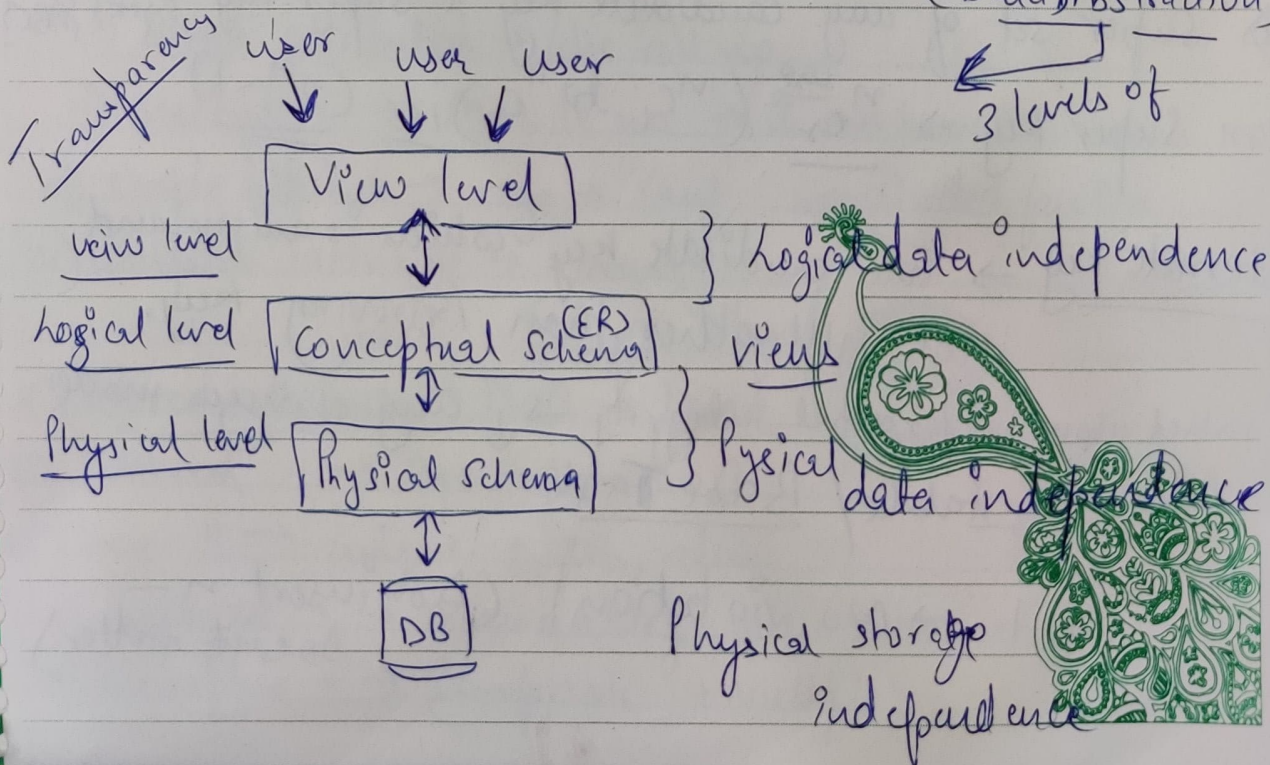 Transparency
user user user
3 levels of
View level
veiw level
Logical data independence
Logical level
(ER)
Conceptual Schema
views
Physical level
Physical Schema
Pysical
data independence
DB
Physical storage
independence